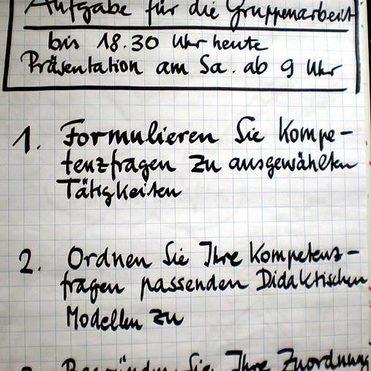 Aufgabe für die Gruppenarbeit
bis 18.30 Uhr heute
Präsentation am Sa. ab 9 Uhr
1. Formulieren Sie Kompe-
tenzfragen zu ausgewählten
Tätigkeiten
2. Ordnen Sie Ihre Kompetenz-
fragen passenden Didaktischen
Modellen zu
3. Begründen Sie Ihre Zuordnung